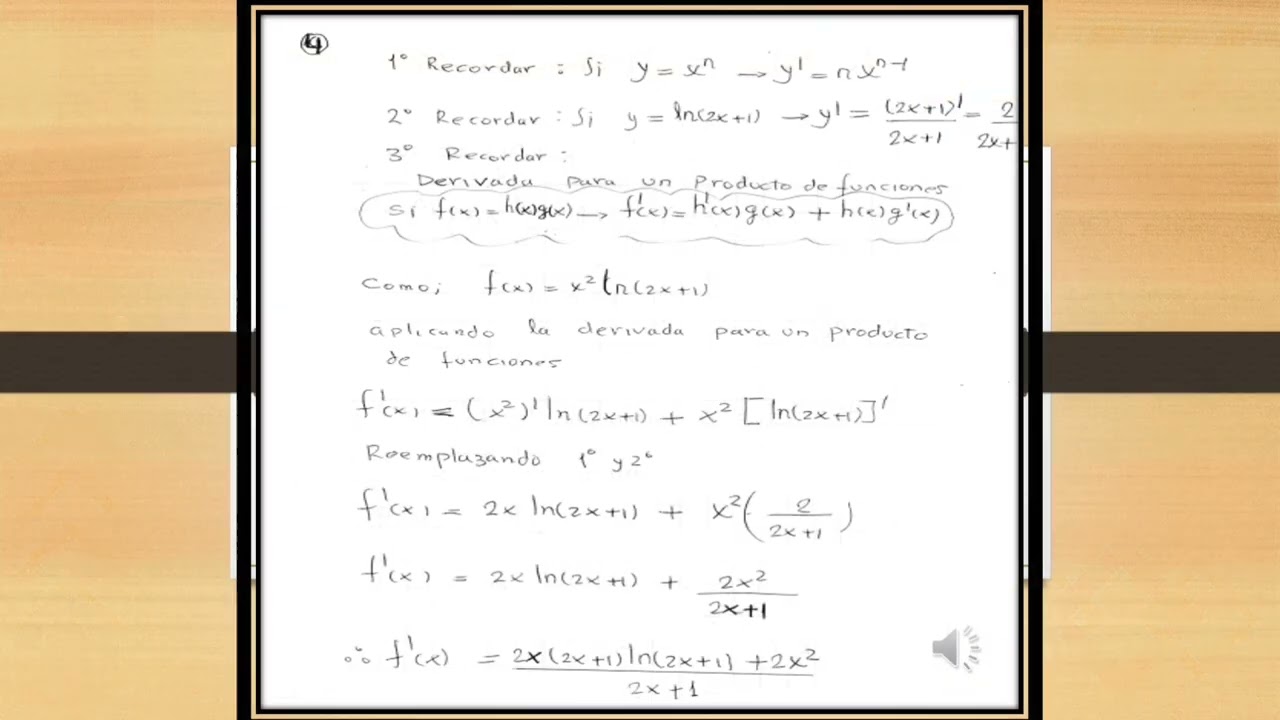 4
1° Recordar : Si y = xⁿ → y' = n xⁿ⁻¹
2° Recordar : Si y = ln(2x+1) → y' = (2x+1)' / 2x+1 = 2 / 2x+
3° Recordar :
Derivada para un Producto de funciones
Si f(x) = h(x)g(x) → f'(x) = h'(x)g(x) + h(x)g'(x)
Como; f(x) = x² ln(2x+1)
aplicando la derivada para un producto
de funciones
f'(x) = (x²)' ln(2x+1) + x² [ln(2x+1)]'
Reemplazando 1° y 2°
f'(x) = 2x ln(2x+1) + x² ( 2 / 2x+1 )
f'(x) = 2x ln(2x+1) + 2x² / 2x+1
∴ f'(x) = 2x(2x+1) ln(2x+1) + 2x² / 2x+1